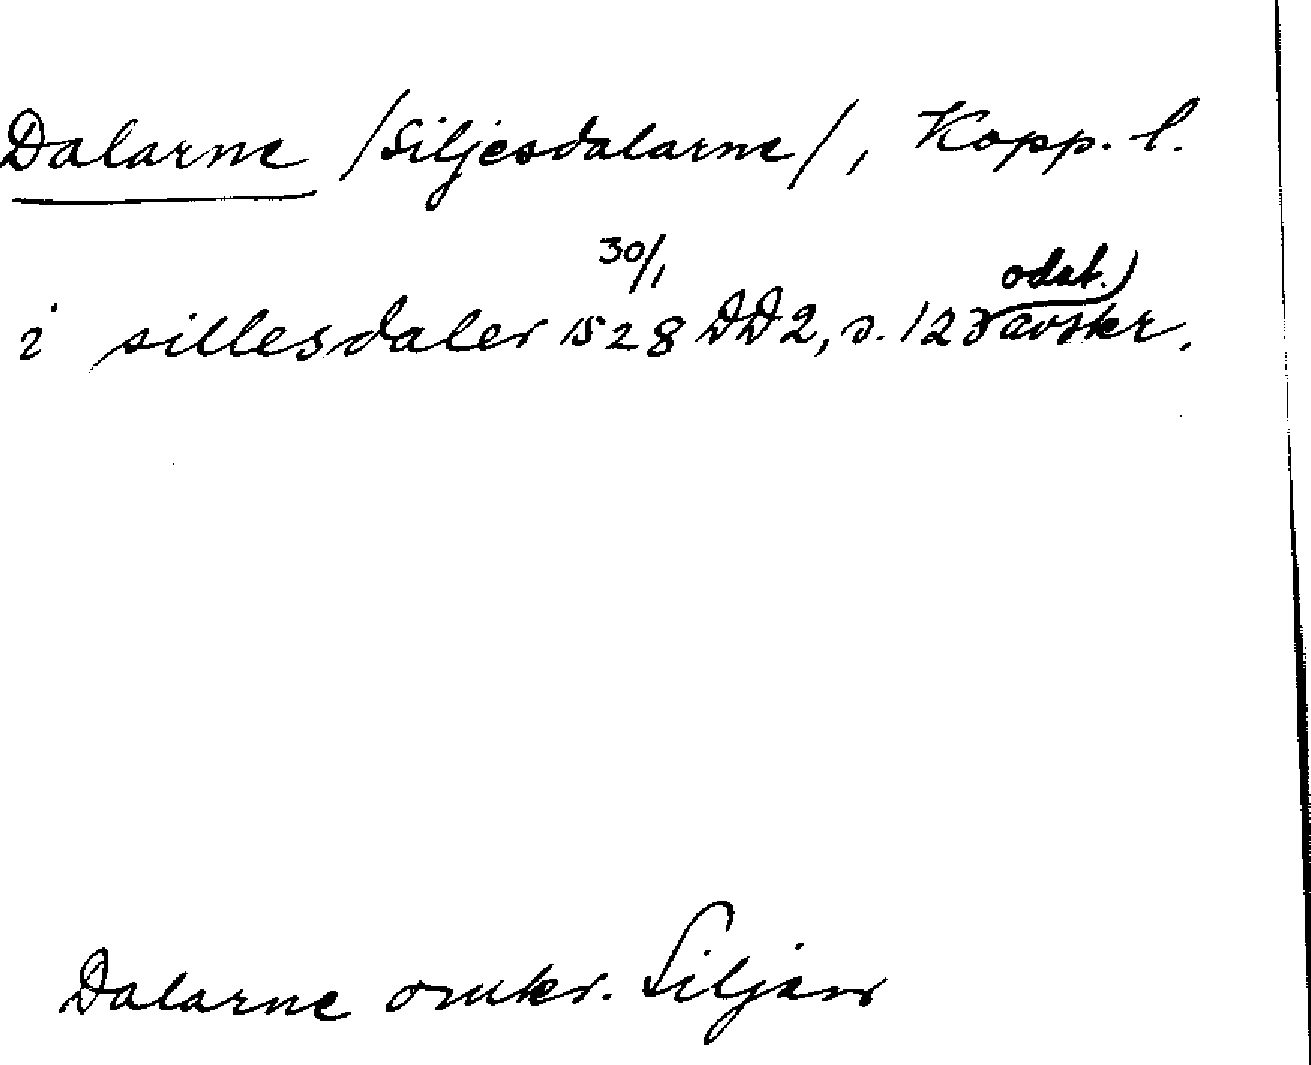 Dalarne /Siljesdalarne/, Kopp. l.
i sillesdaler 30/1 1528 DD2, s. 123 odat. avskr.
Dalarne omkr. Siljan